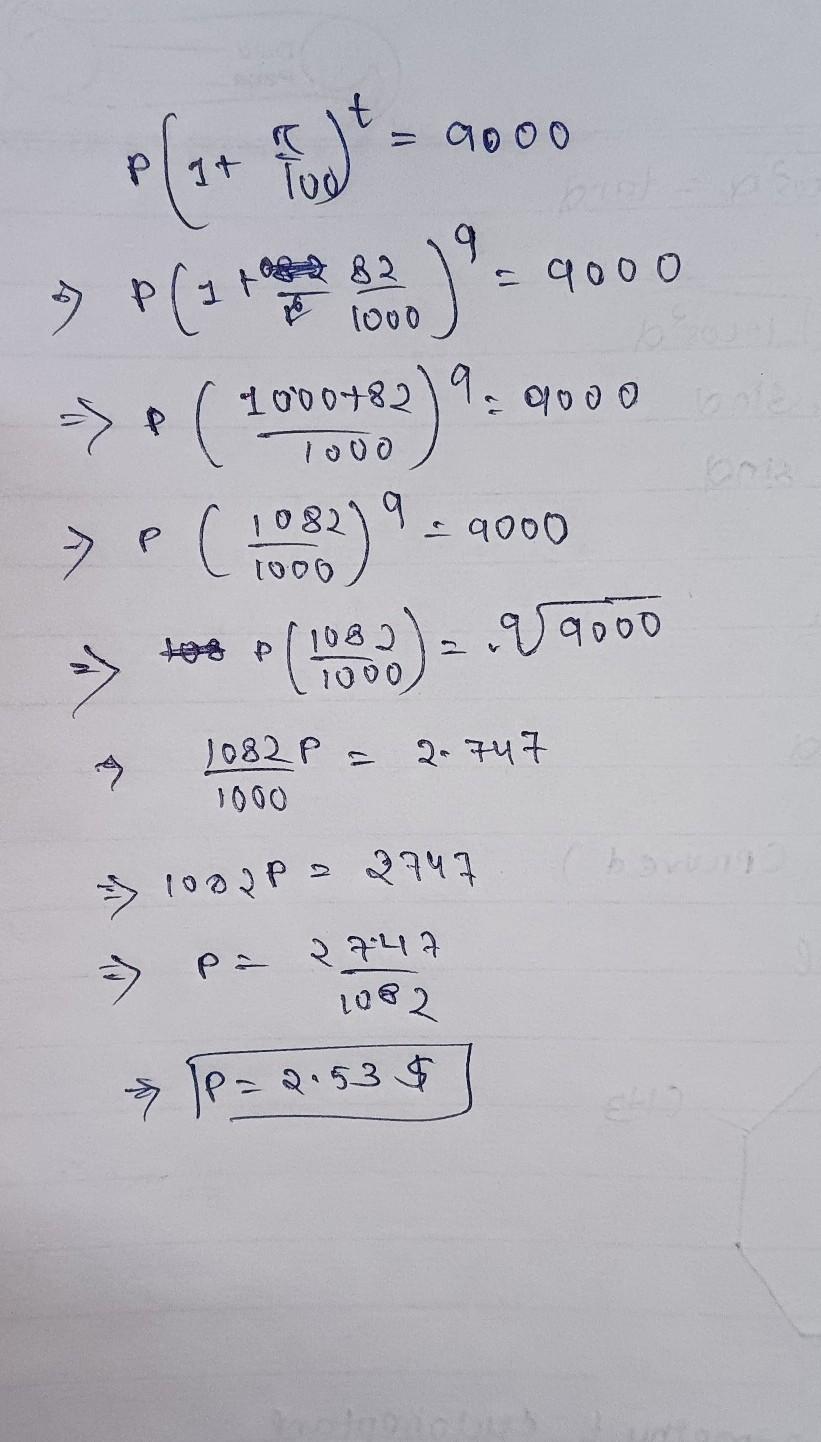 P(1+ r/100)^t = 9000
⇒ P(1+ 82/1000)^9 = 9000
⇒ P(1000+82/1000)^9 = 9000
⇒ P(1082/1000)^9 = 9000
⇒ P(1082/1000) = 9√9000
⇒ 1082P/1000 = 2.747
⇒ 1082P = 2747
⇒ P = 2747/1082
⇒ P = 2.53 $